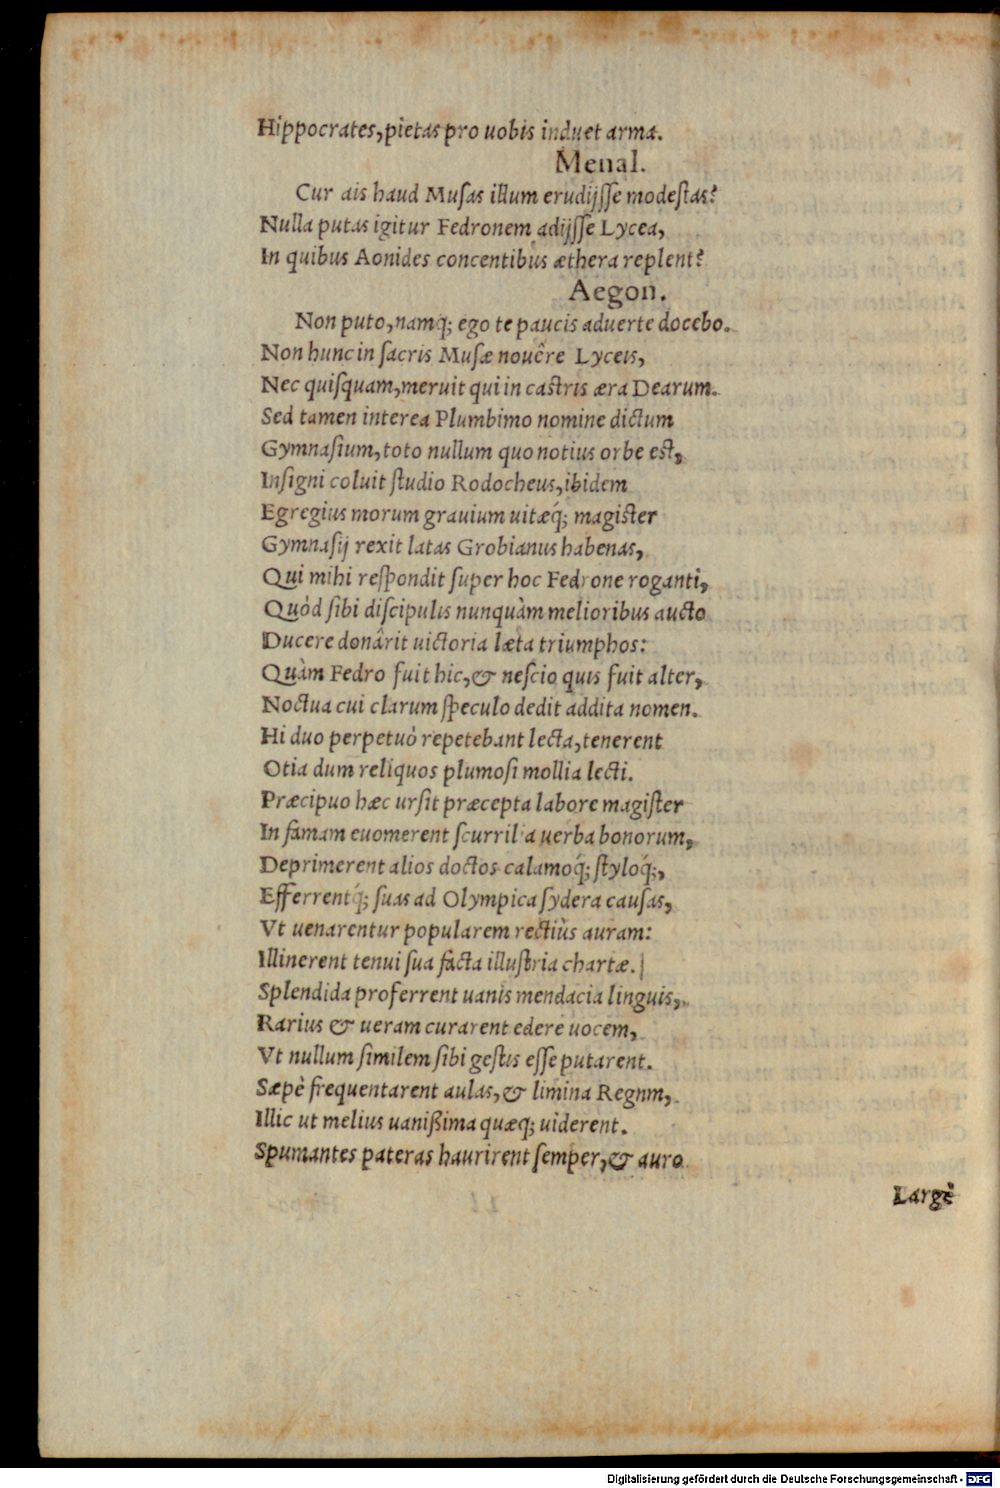 Hippocrates, pietas pro uobis induet arma.
Menal.
Cur ais haud Muſas illum erudijſſe modeſtas?
Nulla putas igitur Fedronem adijſſe Lycea,
In quibus Aonides concentibus æthera replent?
Aegon.
Non puto, namq; ego te paucis aduerte docebo.
Non hunc in ſacris Muſæ nouêre Lyceis,
Nec quiſquam, meruit qui in castris æra Dearum.
Sed tamen interea Plumbimo nomine dictum
Gymnaſium, toto nullum quo notius orbe est,
Inſigni coluit ſtudio Rodocheus, ibidem
Egregius morum grauium uitæq́; magiſter
Gymnaſij rexit latas Grobianus habenas,
Qui mihi reſpondit ſuper hoc Fedrone roganti,
Quòd ſibi diſcipulis nunquàm melioribus aucto
Ducere donârit uictoria læta triumphos:
Quàm Fedro fuit hic, & neſcio quis fuit alter,
Noctua cui clarum ſpeculo dedit addita nomen.
Hi duo perpetuò repetebant lecta, tenerent
Otia dum reliquos plumoſi mollia lecti.
Præcipuo hæc urſit præcepta labore magiſter
In famam euomerent ſcurrilia uerba bonorum,
Deprimerent alios doctos calamoq́; ſtyloq́;,
Efferrentq́; ſuas ad Olympica ſydera cauſas,
Vt uenarentur popularem rectiùs auram:
Illinerent tenui ſua facta illuſtria chartæ.
Splendida proferrent uanis mendacia linguis,
Rarius & ueram curarent edere uocem,
Vt nullum ſimilem ſibi geſtis eſſe putarent.
Sæpè frequentarent aulas, & limina Regnm,
Illic ut melius uanißima quæq; uiderent.
Spumantes pateras haurirent ſemper, & auro
Largè
Digitalisierung gefördert durch die Deutsche Forschungsgemeinschaft - DFG